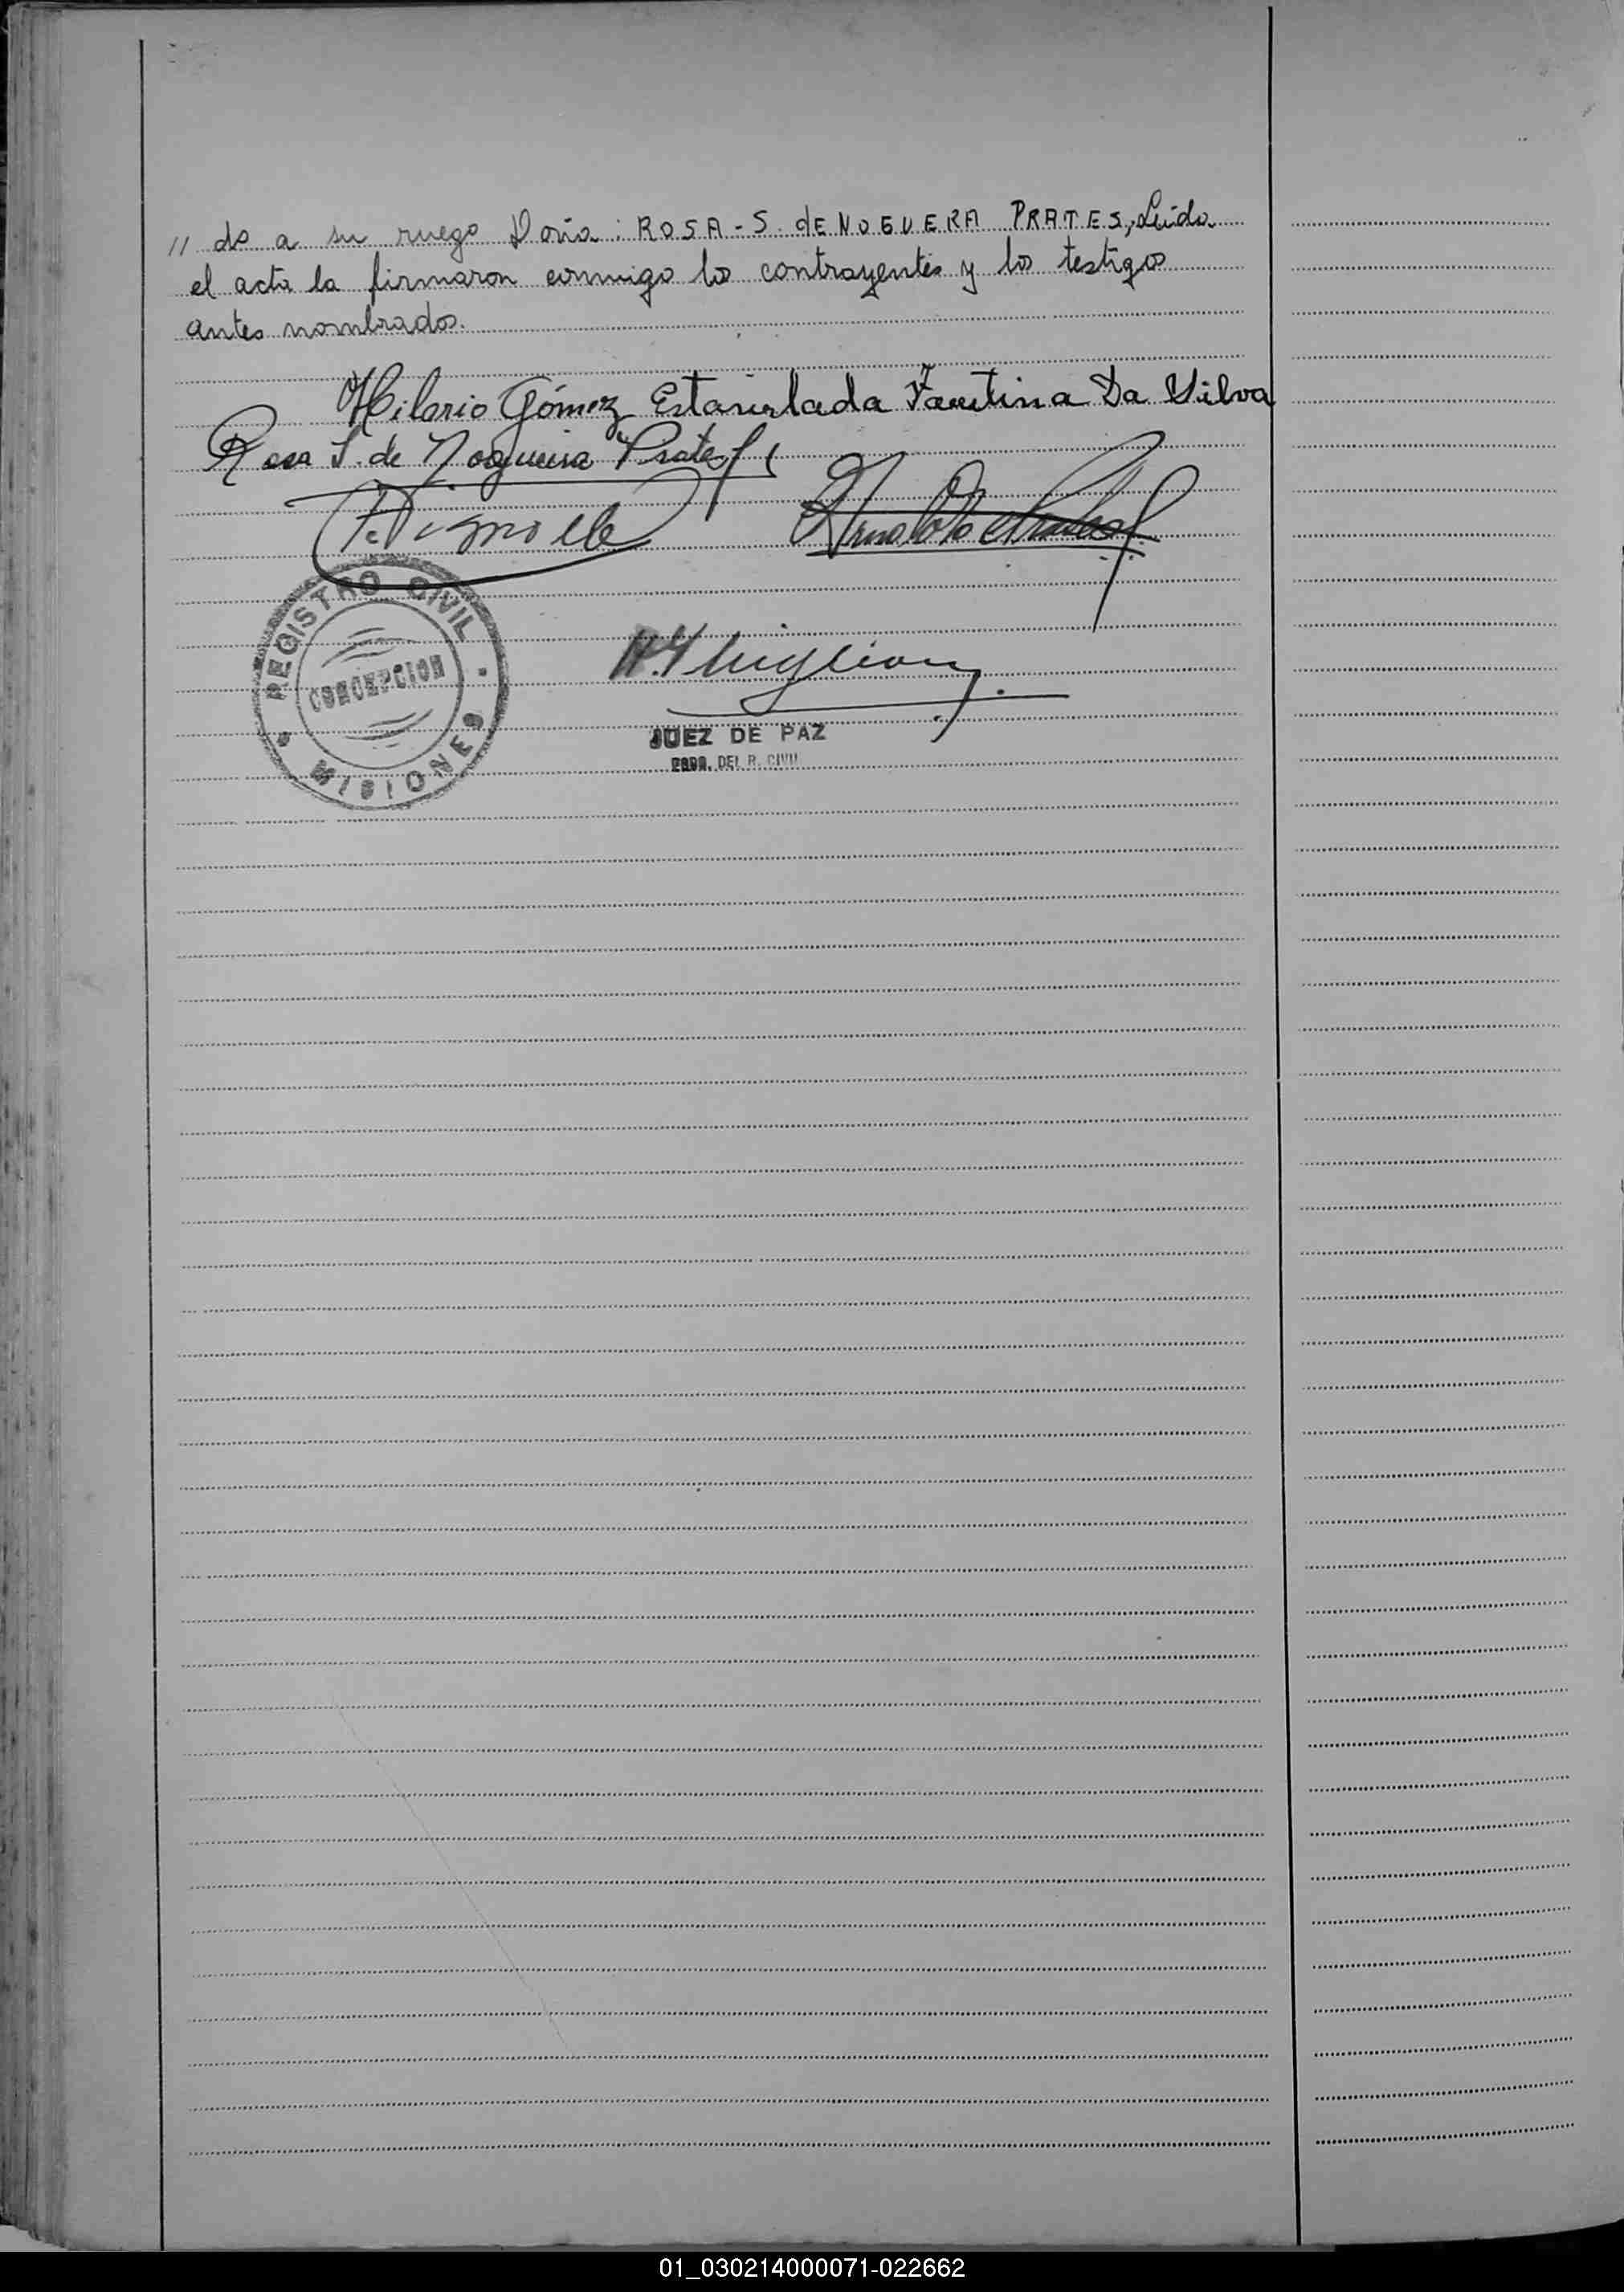 // do a su ruego Doña: ROSA - S. dE NOGUERA PRATES, Leida
el acta la firmaron conmigo los contrayentes y los testigos
antes nombrados.
Hilario Gómez Estanislada Faustina Da Silva
Rosa S. de Nogueira Prates
REGISTRO CIVIL
CONCEPCION
MISIONES
JUEZ DE PAZ
DEL R. CIVIL
01_030214000071-022662